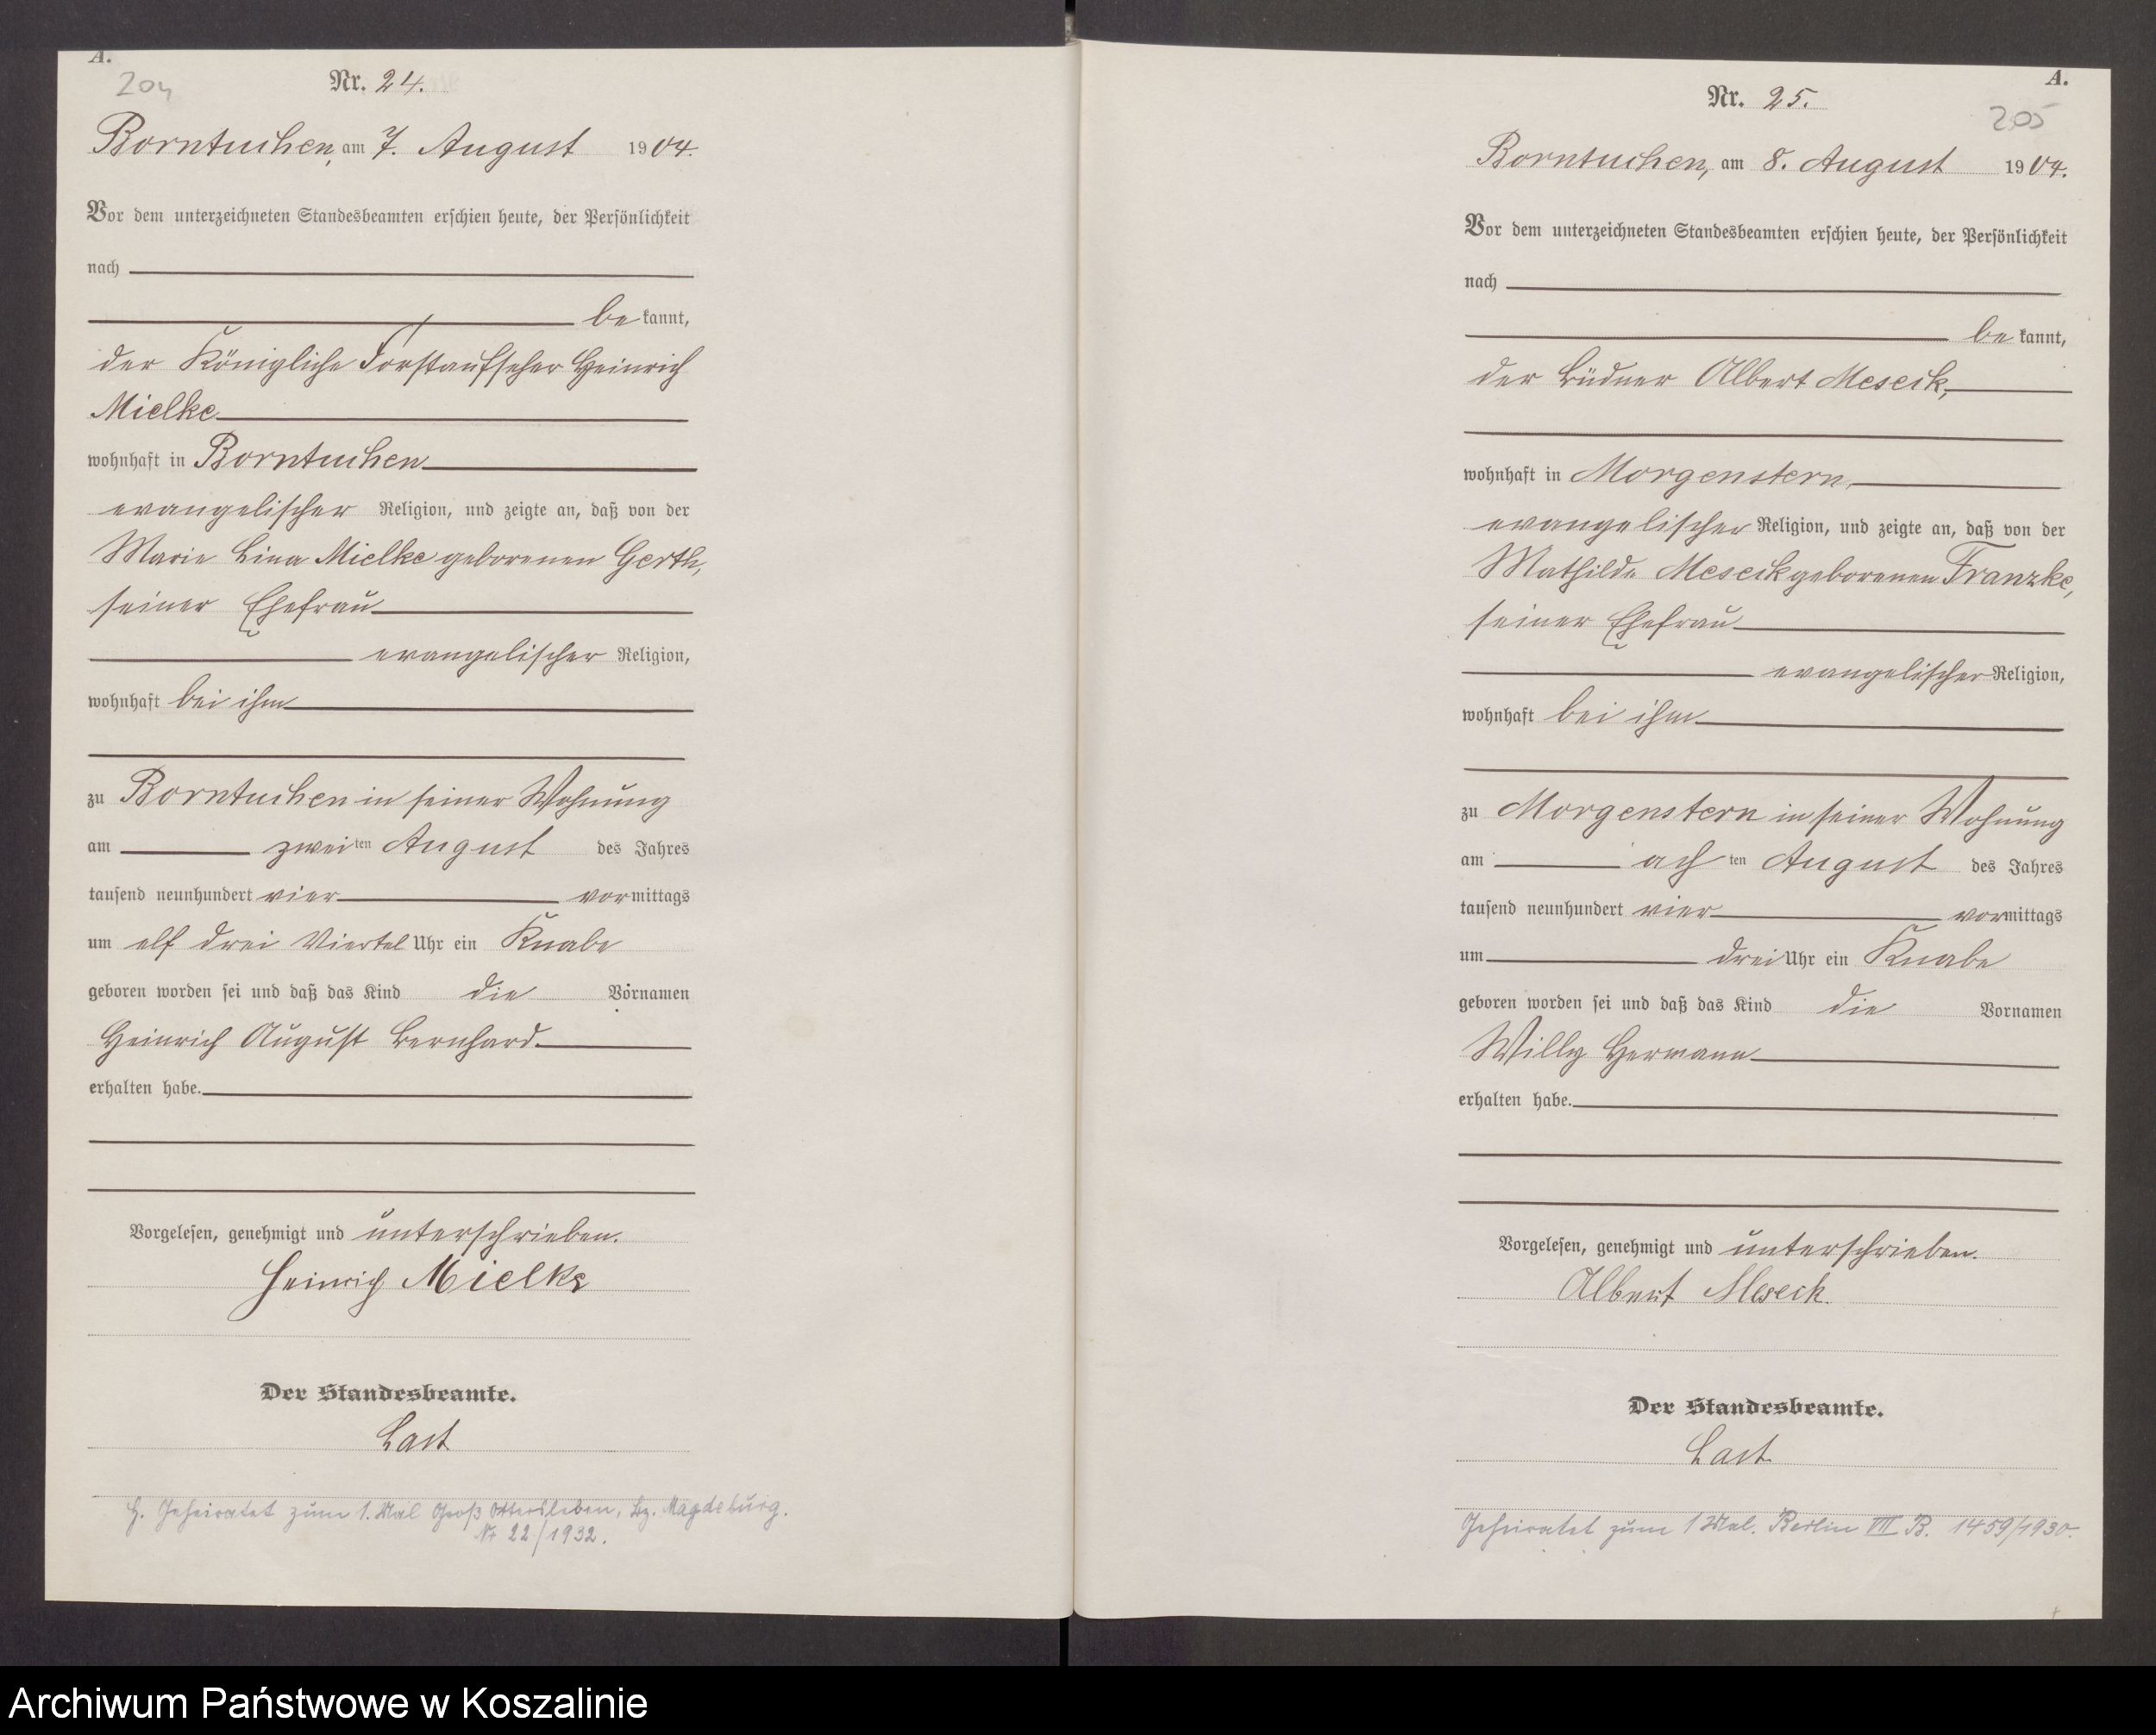 A.
204
Nr. 24.
Borntuchen, am 7. August 1904.
Vor dem unterzeichneten Standesbeamten erschien heute, der Persönlichkeit
nach
be kannt,
der Königliche Forstaufseher Heinrich
Mielke
wohnhaft in Borntuchen
evangelischer Religion, und zeigte an, daß von der
Marie Lina Mielke geborenen Gerth,
seiner Ehefrau
evangelischer Religion,
wohnhaft bei ihm
zu Borntuchen in seiner Wohnung
am zweiten August des Jahres
tausend neunhundert vier vormittags
um elf drei Viertel Uhr ein Knabe
geboren worden sei und daß das Kind die Vornamen
Heinrich August Bernhard.
erhalten habe.
Vorgelesen, genehmigt und unterschrieben.
Heinrich Mielke
Der Standesbeamte.
Last
H. Geheiratet zum 1. Mal Groß Ottersleben, Bz. Magdeburg.
Nr 22/1932.
A.
205
Nr. 25.
Borntuchen, am 8. August 1904.
Vor dem unterzeichneten Standesbeamten erschien heute, der Persönlichkeit
nach
be kannt,
der Büdner Albert Meseck,
wohnhaft in Morgenstern
evangelischer Religion, und zeigte an, daß von der
Mathilde Meseck geborenen Franzke,
seiner Ehefrau
evangelischer Religion,
wohnhaft bei ihm
zu Morgenstern in seiner Wohnung
am achten August des Jahres
tausend neunhundert vier vormittags
um drei Uhr ein Knabe
geboren worden sei und daß das Kind die Vornamen
Willy Hermann
erhalten habe.
Vorgelesen, genehmigt und unterschrieben.
Albert Meseck.
Der Standesbeamte.
Last.
Geheiratet zum 1 Mal. Berlin VII B. 1459/1930.
Archiwum Państwowe w Koszalinie